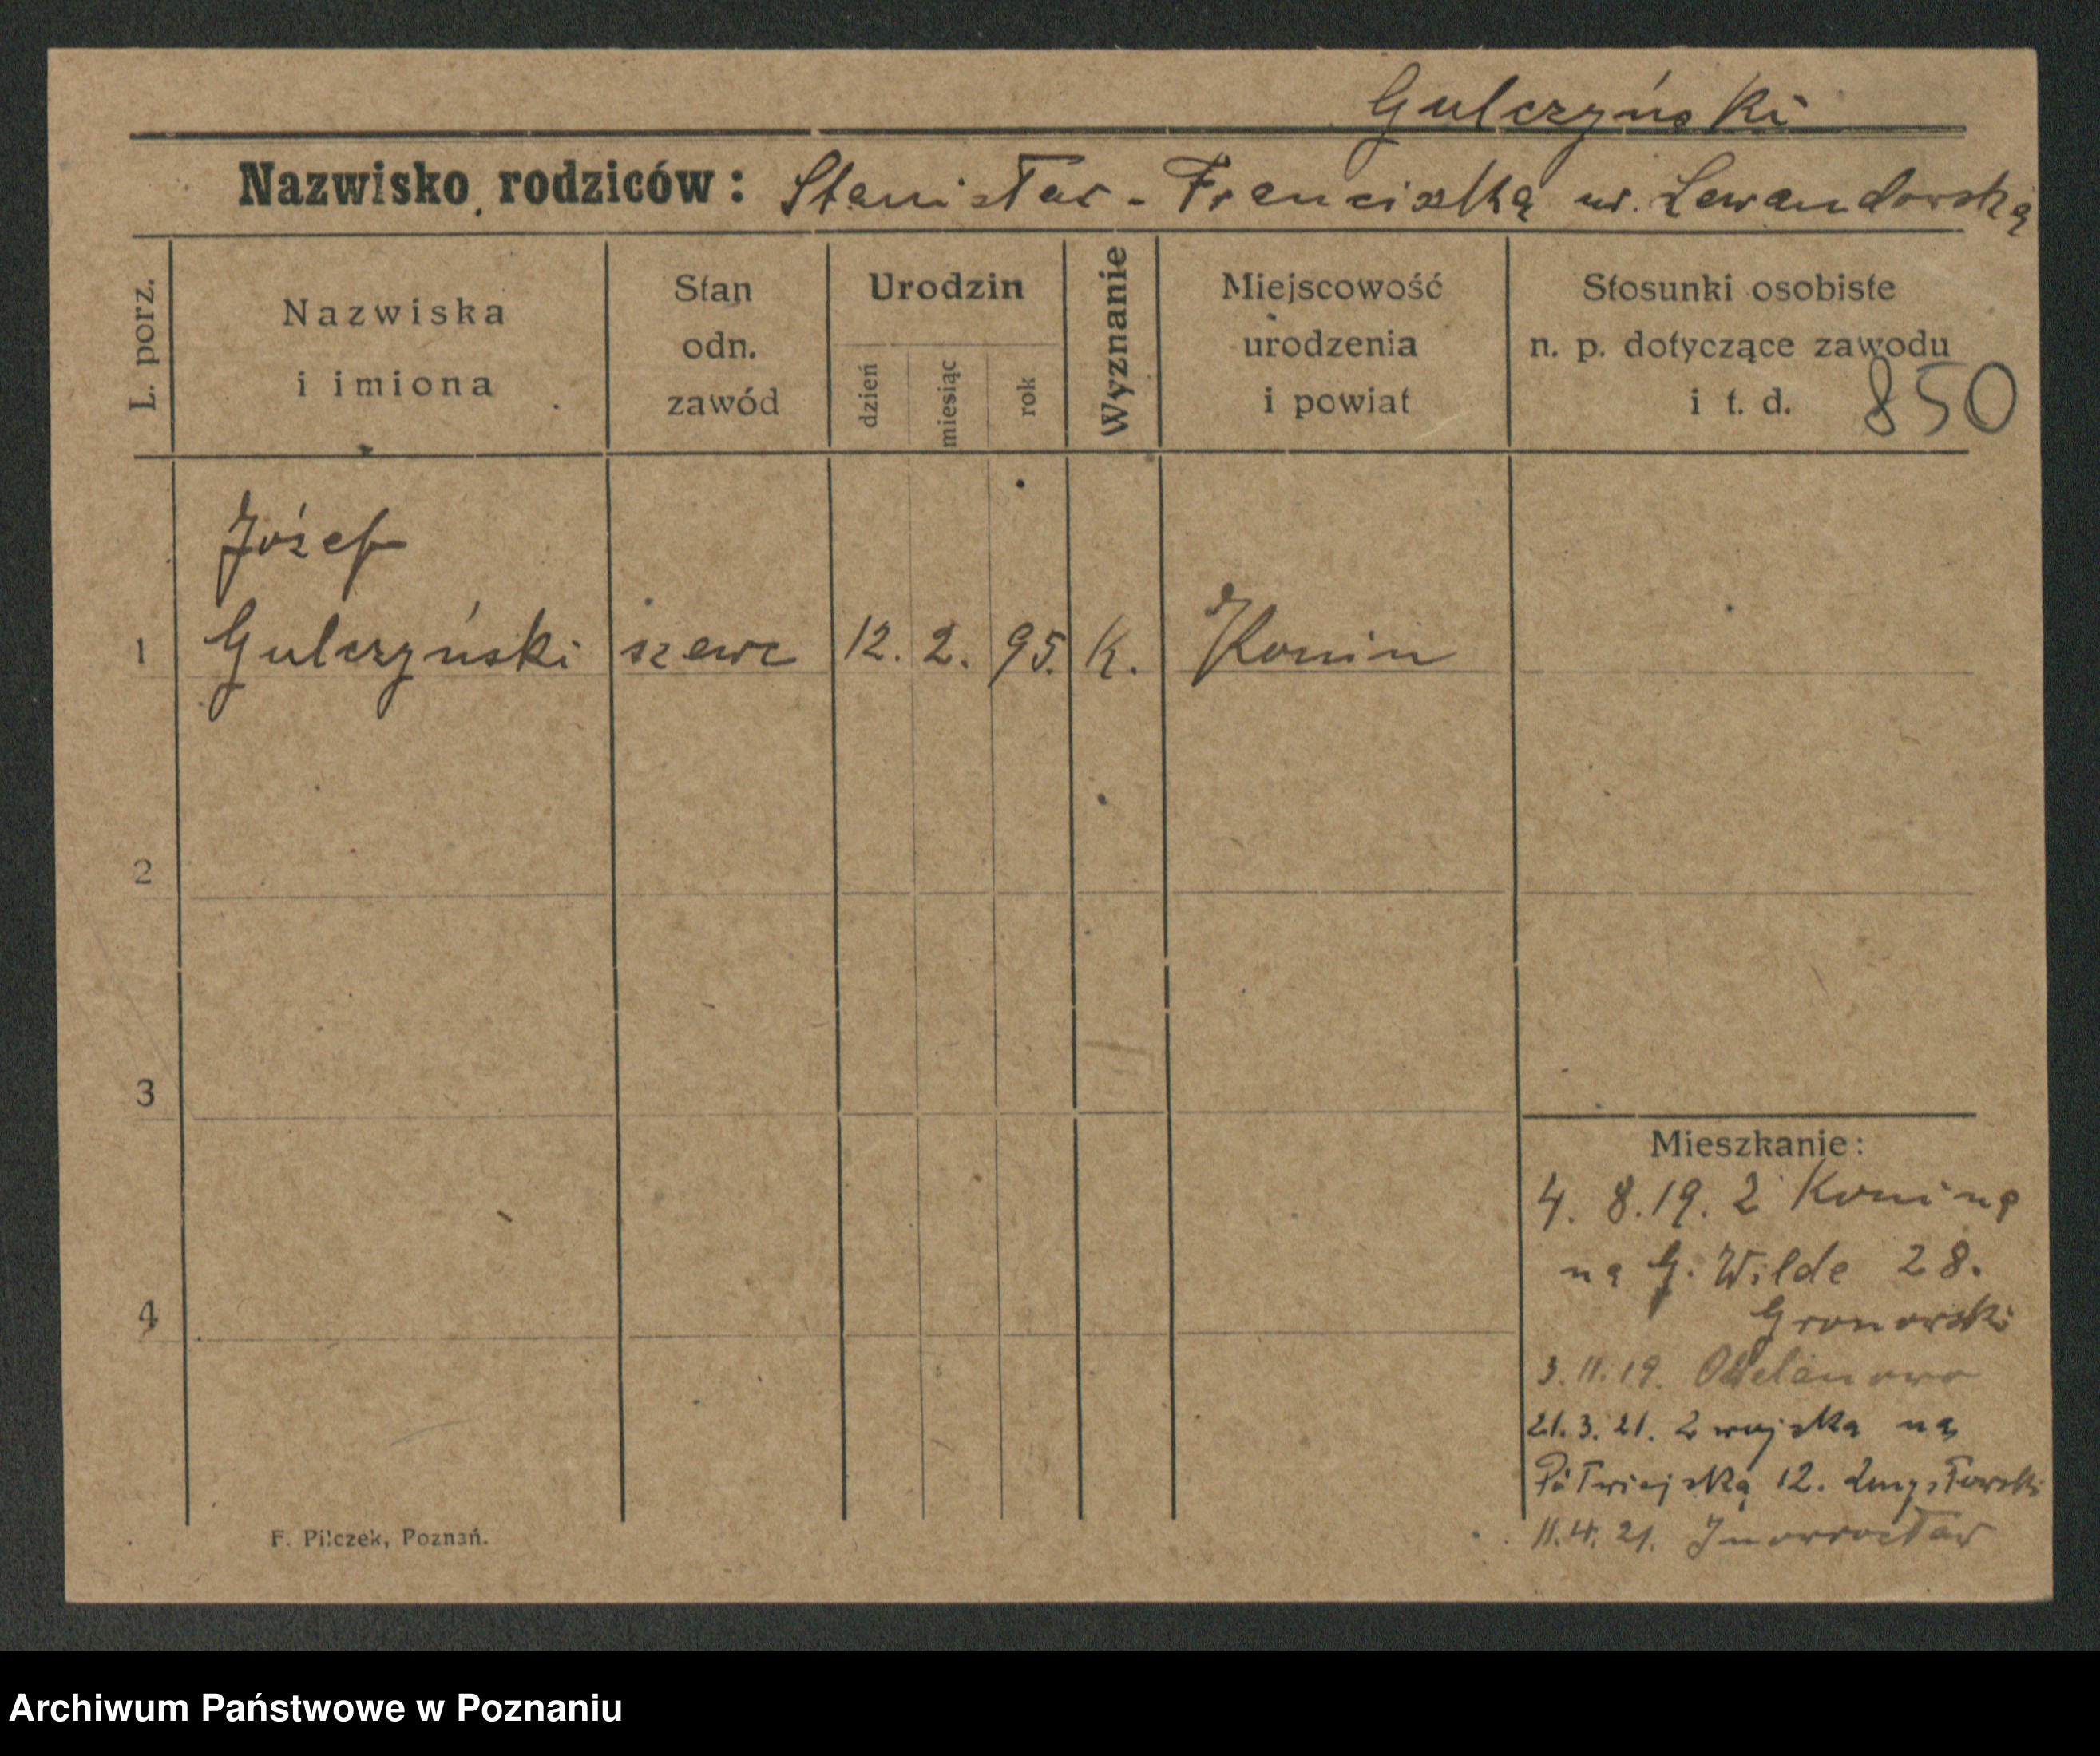 Gulczyński
Nazwisko rodziców: Stanisław - Franciszka ur. Lewandowska
L. porz.
Nazwiska i imiona
Stan odn. zawód
Urodzin
dzień miesiąc rok
Wyznanie
Miejscowość urodzenia i powiat
Stosunki osobiste n. p. dotyczące zawodu i t. d.
850
Józef
1 Gulczyński szewc 12. 2. 95. K. Konin
2
3
4
Mieszkanie:
4. 8.19. z Konina
na G. Wilde 28.
Gronowski
3.11.19. Odolanowo
21.3.21. z wojska na
Półwiejską 12. Zmysłowski
11.4.21. Inowrocław
F. Pilczek, Poznań.
Archiwum Państwowe w Poznaniu